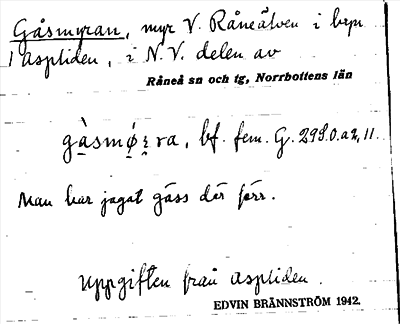 Gåsmyran, myr V. Råneälven i byn
Aspliden, i N.V. delen av
Råneå sn och tg, Norrbottens län
bf. fem. G. 293.0.a2,11.
Man har jagat gäss där förr.
Uppgiften från Aspliden.
EDVIN BRÄNNSTRÖM 1942.